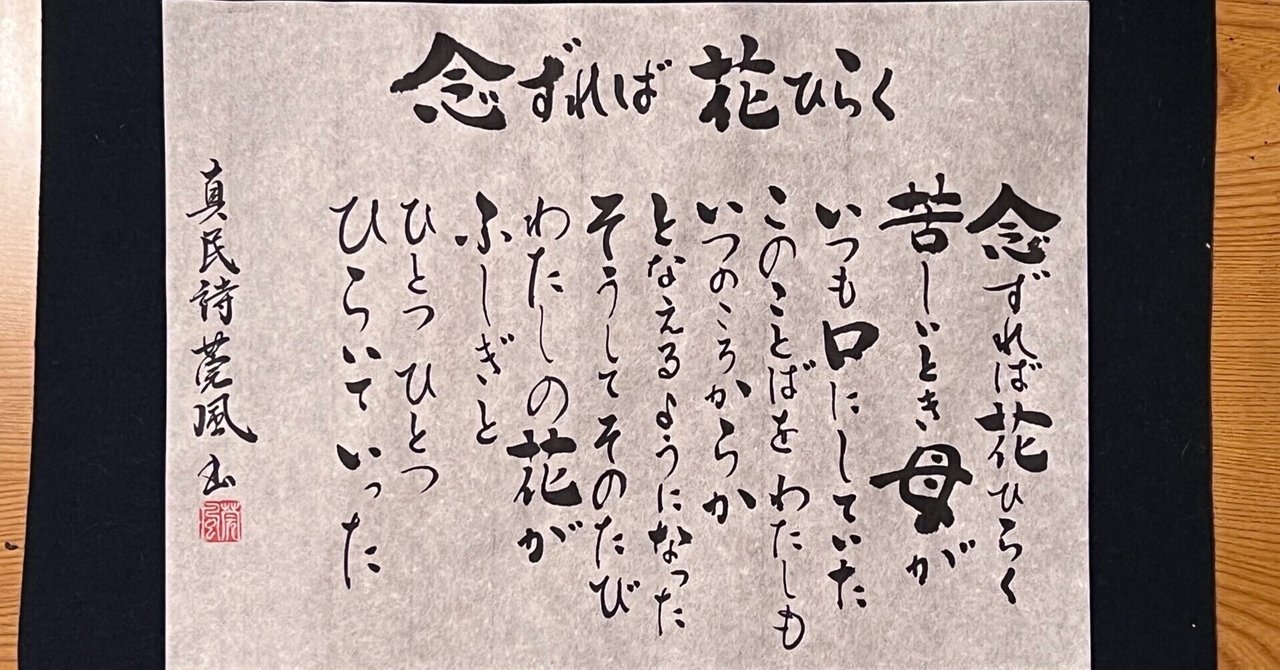 念ずれば花ひらく
念ずれば花ひらく
苦しいとき母が
いつも口にしていた
このことばをわたしも
いつのころからか
となえるようになった
そうしてそのたび
わたしの花が
ふしぎと
ひとつひとつ
ひらいていった
真民詩 莞風 書
莞風